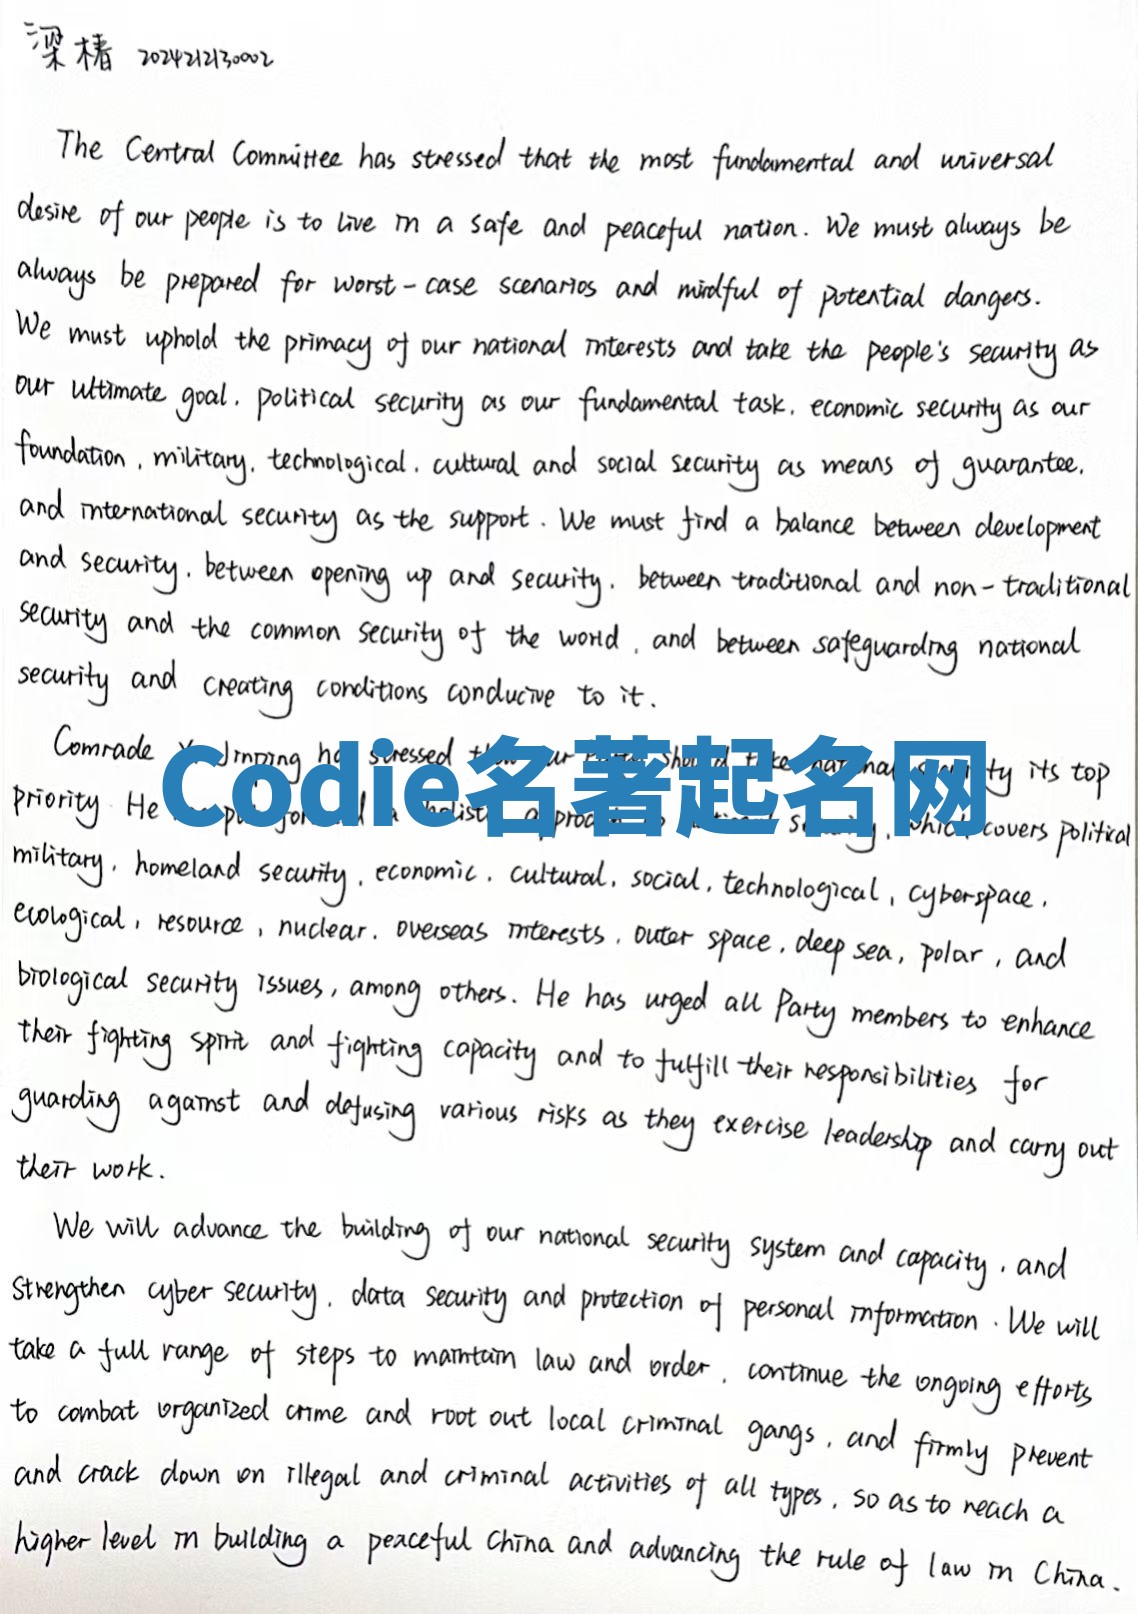 梁椿 2024212130002
The Central Committee has stressed that the most fundamental and universal
desire of our people is to live in a safe and peaceful nation. We must always be
always be prepared for worst-case scenarios and mindful of potential dangers.
We must uphold the primacy of our national interests and take the people's security as
our ultimate goal, political security as our fundamental task, economic security as our
foundation, military, technological, cultural and social security as means of guarantee,
and international security as the support. We must find a balance between development
and security, between opening up and security, between traditional and non-traditional
security and the common security of the world, and between safeguarding national
security and creating conditions conducive to it.
Comrade Jinping stressed its top
Codie名著起名网
priority. He covers political
military, homeland security, economic, cultural, social, technological, cyberspace,
ecological, resource, nuclear, overseas interests, outer space, deep sea, polar, and
biological security issues, among others. He has urged all Party members to enhance
their fighting spirit and fighting capacity and to fulfill their responsibilities for
guarding against and defusing various risks as they exercise leadership and carry out
their work.
We will advance the building of our national security system and capacity, and
strengthen cyber security, data security and protection of personal information. We will
take a full range of steps to maintain law and order, continue the ongoing efforts
to combat organized crime and root out local criminal gangs, and firmly prevent
and crack down on illegal and criminal activities of all types, so as to reach a
higher level in building a peaceful China and advancing the rule of law in China.